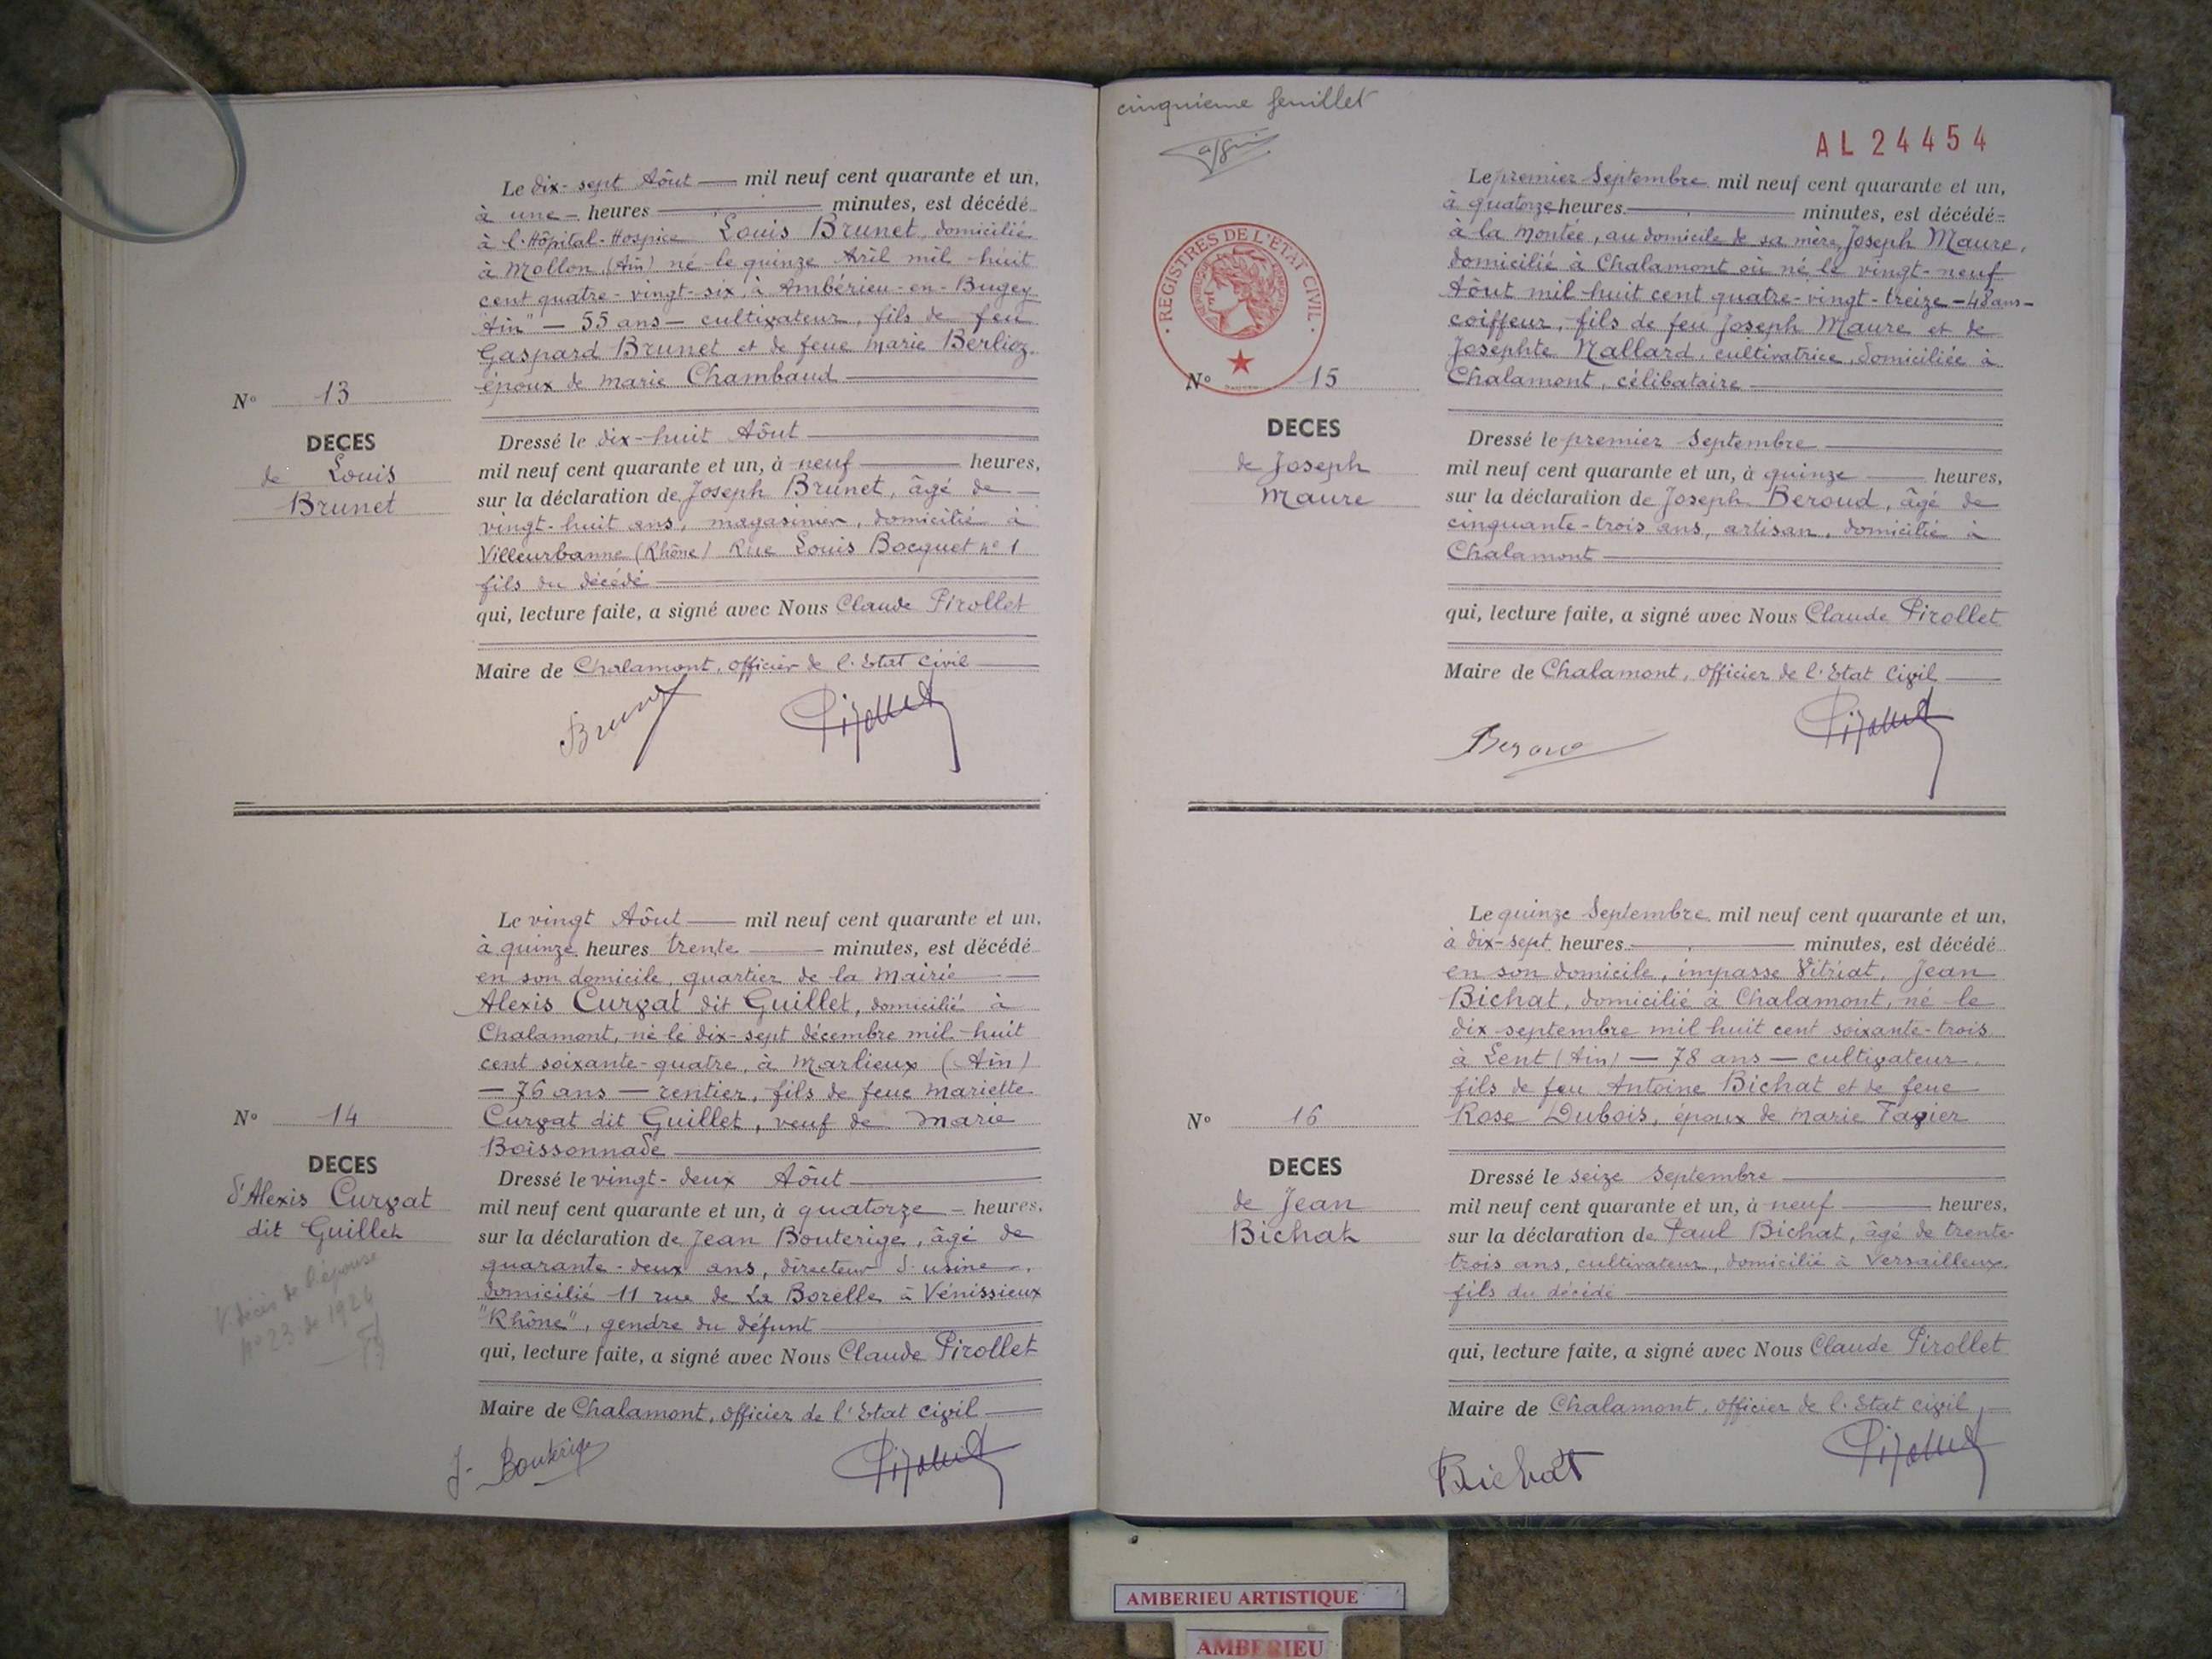 Le dix-sept Août mil neuf cent quarante et un,
à une heures minutes, est décédé
à l'Hôpital-Hospice Louis Brunet, domicilié
à Mollon (Ain) né le quinze Avril mil huit
cent quatre-vingt-six, à Ambérieu-en-Bugey
"Ain" — 55 ans — cultivateur, fils de feu
Gaspard Brunet et de feue Marie Berlioz.
époux de Marie Chambaud
N° 13
DECES
de Louis
Brunet
Dressé le dix-huit Août
mil neuf cent quarante et un, à neuf heures,
sur la déclaration de Joseph Brunet, âgé de
vingt-huit ans, magasinier, domicilié à
Villeurbanne (Rhône) Rue Louis Bocquet n° 1
fils du décédé
qui, lecture faite, a signé avec Nous Claude Pirollet
Maire de Chalamont, officier de l'Etat Civil
Brunet Pirollet
Le vingt Août mil neuf cent quarante et un,
à quinze heures trente minutes, est décédé
en son domicile, quartier de la Mairie
Alexis Curzat dit Guillet, domicilié à
Chalamont, né le dix-sept décembre mil huit
cent soixante-quatre, à Marlieux (Ain)
— 76 ans — rentier, fils de feue Mariette
Curzat dit Guillet, veuf de Marie
Boissonnade
N° 14
DECES
d'Alexis Curzat
dit Guillet
V. décès de l'épouse
n° 23 de 1924
Dressé le vingt-deux Août
mil neuf cent quarante et un, à quatorze heures,
sur la déclaration de Jean Bouterige, âgé de
quarante-deux ans, directeur d'usine,
domicilié 11 rue de La Borelle à Vénissieux
"Rhône", gendre du défunt
qui, lecture faite, a signé avec Nous Claude Pirollet
Maire de Chalamont, officier de l'Etat Civil
J. Bouterige Pirollet
cinquième feuillet
AL 24454
REGISTRES DE L'ETAT CIVIL
Le premier Septembre mil neuf cent quarante et un,
à quatorze heures minutes, est décédé
à la Montée, au domicile de sa mère, Joseph Maure,
domicilié à Chalamont où né le vingt-neuf
Août mil huit cent quatre-vingt-treize — 48 ans —
coiffeur, fils de feu Joseph Maure et de
Josephte Mallard, cultivatrice, domiciliée à
Chalamont, célibataire
N° 15
DECES
de Joseph
Maure
Dressé le premier Septembre
mil neuf cent quarante et un, à quinze heures,
sur la déclaration de Joseph Beroud, âgé de
cinquante-trois ans, artisan, domicilié à
Chalamont
qui, lecture faite, a signé avec Nous Claude Pirollet
Maire de Chalamont, Officier de l'Etat Civil
Beroud Pirollet
Le quinze Septembre mil neuf cent quarante et un,
à dix-sept heures minutes, est décédé
en son domicile, impasse Vitriat, Jean
Bichat, domicilié à Chalamont, né le
dix septembre mil huit cent soixante-trois
à Lent (Ain) — 78 ans — cultivateur,
fils de feu Antoine Bichat et de feue
Rose Dubois, époux de Marie Tagier
N° 16
DECES
de Jean
Bichat
Dressé le seize Septembre
mil neuf cent quarante et un, à neuf heures,
sur la déclaration de Paul Bichat, âgé de trente
trois ans, cultivateur, domicilié à Versailleux,
fils du décédé
qui, lecture faite, a signé avec Nous Claude Pirollet
Maire de Chalamont, officier de l'Etat Civil
Bichat Pirollet
AMBERIEU ARTISTIQUE
AMBERIEU